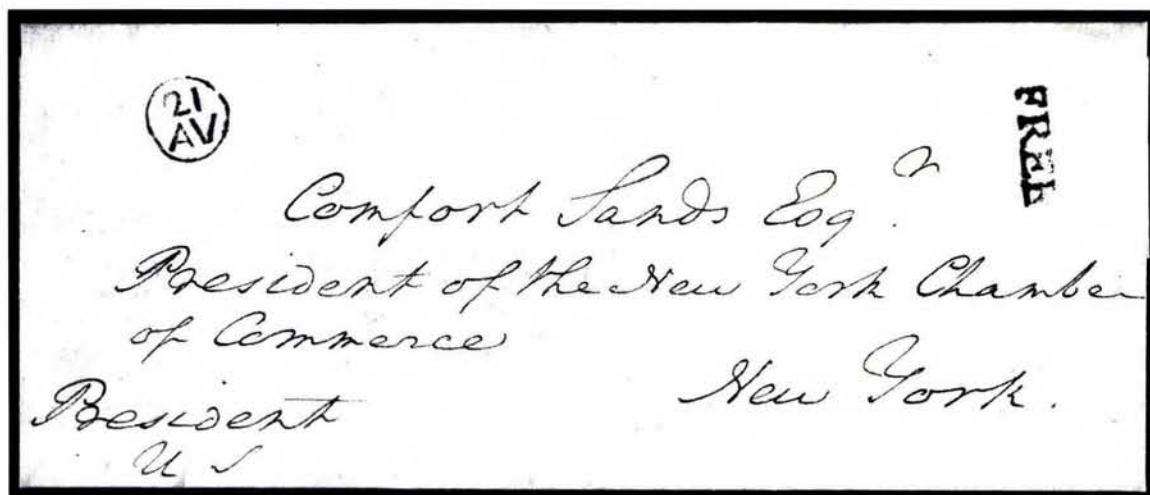 21
AV
FREE
Comfort Sands Esqr.
President of the New York Chamber
of Commerce
New York.
President
U S